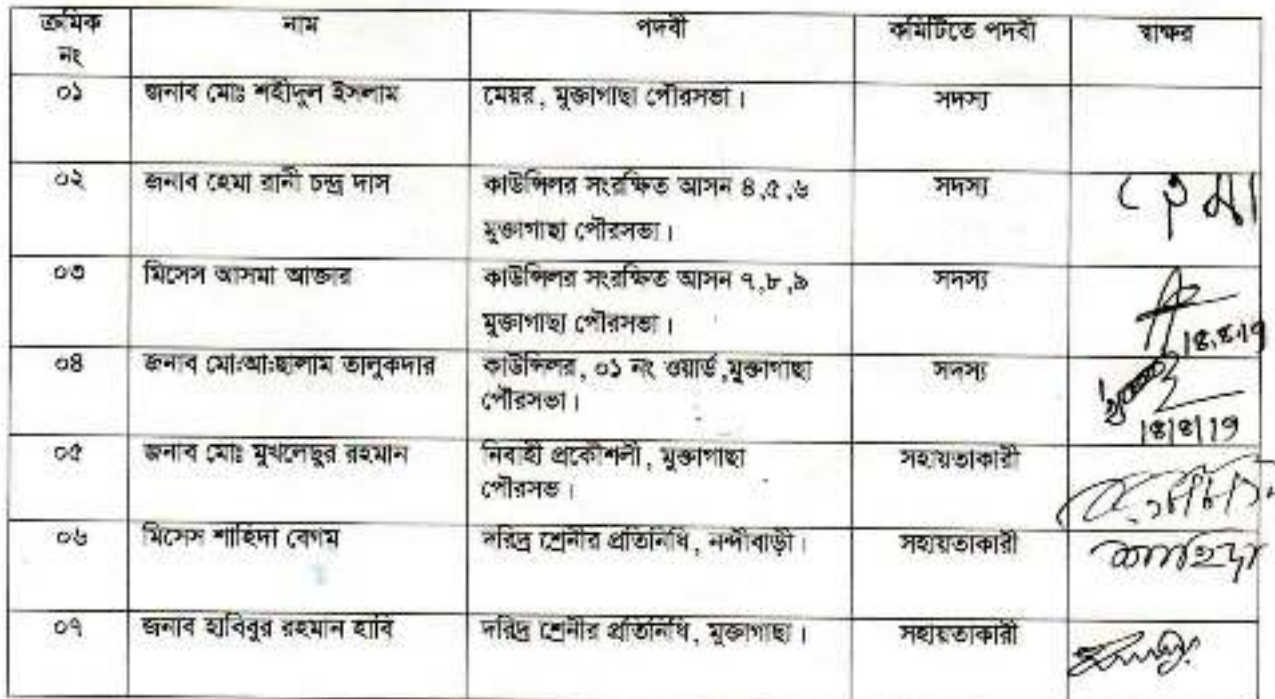 ক্রমিক নং নাম পদবী কমিটিতে পদবী স্বাক্ষর
০১ জনাব মোঃ শহীদুল ইসলাম মেয়র, মুক্তাগাছা পৌরসভা। সদস্য
০২ জনাব হেমা রানী চন্দ্র দাস কাউন্সিলর সংরক্ষিত আসন ৪,৫,৬ সদস্য হেমা
মুক্তাগাছা পৌরসভা।
০৩ মিসেস আসমা আক্তার কাউন্সিলর সংরক্ষিত আসন ৭,৮,৯ সদস্য
মুক্তাগাছা পৌরসভা।
০৪ জনাব মো:আ:ছালাম তালুকদার কাউন্সিলর, ০১ নং ওয়ার্ড,মুক্তাগাছা সদস্য
পৌরসভা।
০৫ জনাব মোঃ মুখলেছুর রহমান নিবাহী প্রকৌশলী, মুক্তাগাছা সহায়তাকারী
পৌরসভ।
০৬ মিসেস শাহিদা বেগম দরিদ্র শ্রেনীর প্রতিনিধি, নন্দীবাড়ী। সহায়তাকারী শাহিদা
০৭ জনাব হাবিবুর রহমান হাবি দরিদ্র শ্রেনীর প্রতিনিধি, মুক্তাগাছা। সহায়তাকারী